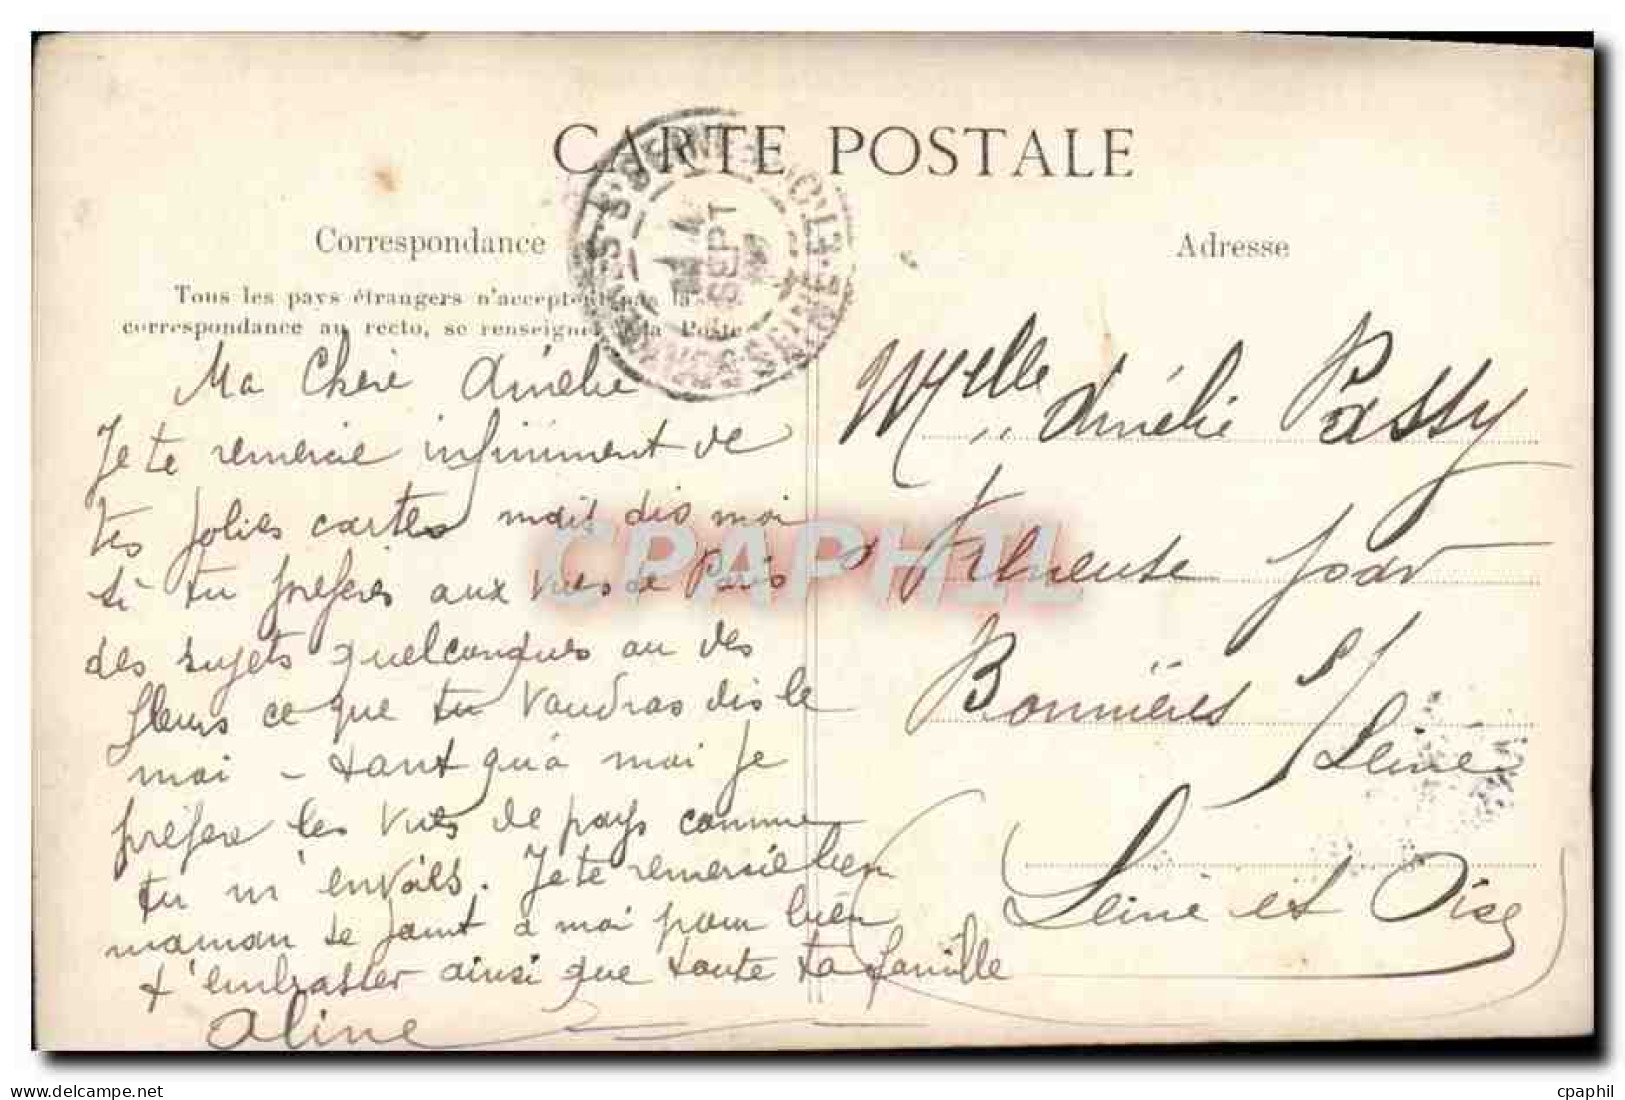 CARTE POSTALE
Correspondance
Tous les pays étrangers n'acceptent pas la
correspondance au recto, se renseigner à la Poste
Ma Chère Amélie
Je te remercie infiniment de
tes jolies cartes mais dis moi
si tu préfères aux vues de Paris
des sujets quelconques ou des
fleurs ce que tu voudras dis le
moi - tant qu'à moi je
préfère les vues de pays comme
tu m'envoies. Je te remercie bien
maman se joint à moi pour bien
t'embrasser ainsi que toute ta famille
Aline
Adresse
Melle Amélie Passy
Bonnières s/
Seine
Seine et Oise
SEPT
CPAPHIL
cpaphil